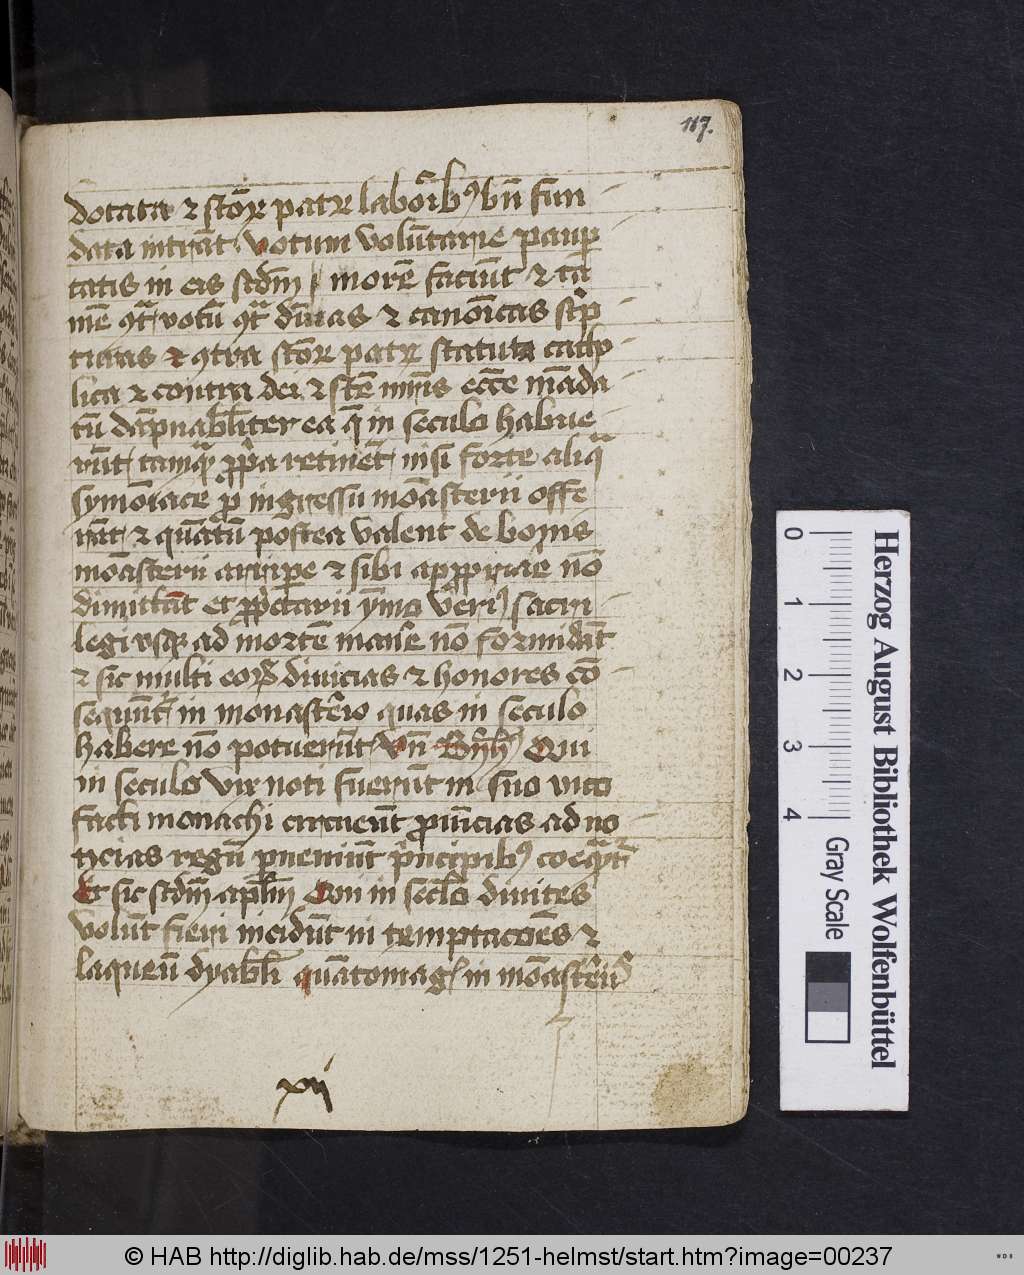 117.
dotata ⁊ sctoꝝ patꝝ laborib9 bn̄ fun
data intrāt votum volūtarie paup
tatis in eis scdm̄ morē faciūt ⁊ ta
mē ꝯͣ votū ꝯͣ diuīas ⁊ canoīcas sc̄p
turas ⁊ ꝯtra sctoꝝ patꝝ statuta
lica ⁊ contra dei ⁊ scē mr̄is ecc̄e māda
tū dāpnabilr̄ ea q̄ in seculo habue
rūt tamꝙ ꝓpͥa retinēt nisi forte aliqͣ
symoīace ꝓ ingressu mōasterii offe
rāt ⁊ quātū postea valent de bonis
mōasterii arripe ⁊ sibi appͥare nō
dimittāt et ꝓpͥetarii ymo veri9 sacri
legi vsqꝫ ad mortē manē nō formidāt
⁊ sic multi eoꝝ diuicias ⁊ honores cō
sequūt᷑ in monastͥio quas in seculo
habere nō potuerūt vn̄ Qui
in seculo vix noti fuerūt in suo vico
facti monachi circueūt ꝓuīcias ad no
ticias regū pueniūt pͥncipib9 coeqͣt᷑
Et sic scdm̄ aplm̄ Qui in seclo diuites
volūt fieri incidūt in temptacōes ⁊
laqueū dyabli quātomag9 in mōastͥiis
xii
Herzog August Bibliothek Wolfenbüttel
0 1 2 3 4 Gray Scale
© HAB http://diglib.hab.de/mss/1251-helmst/start.htm?image=00237